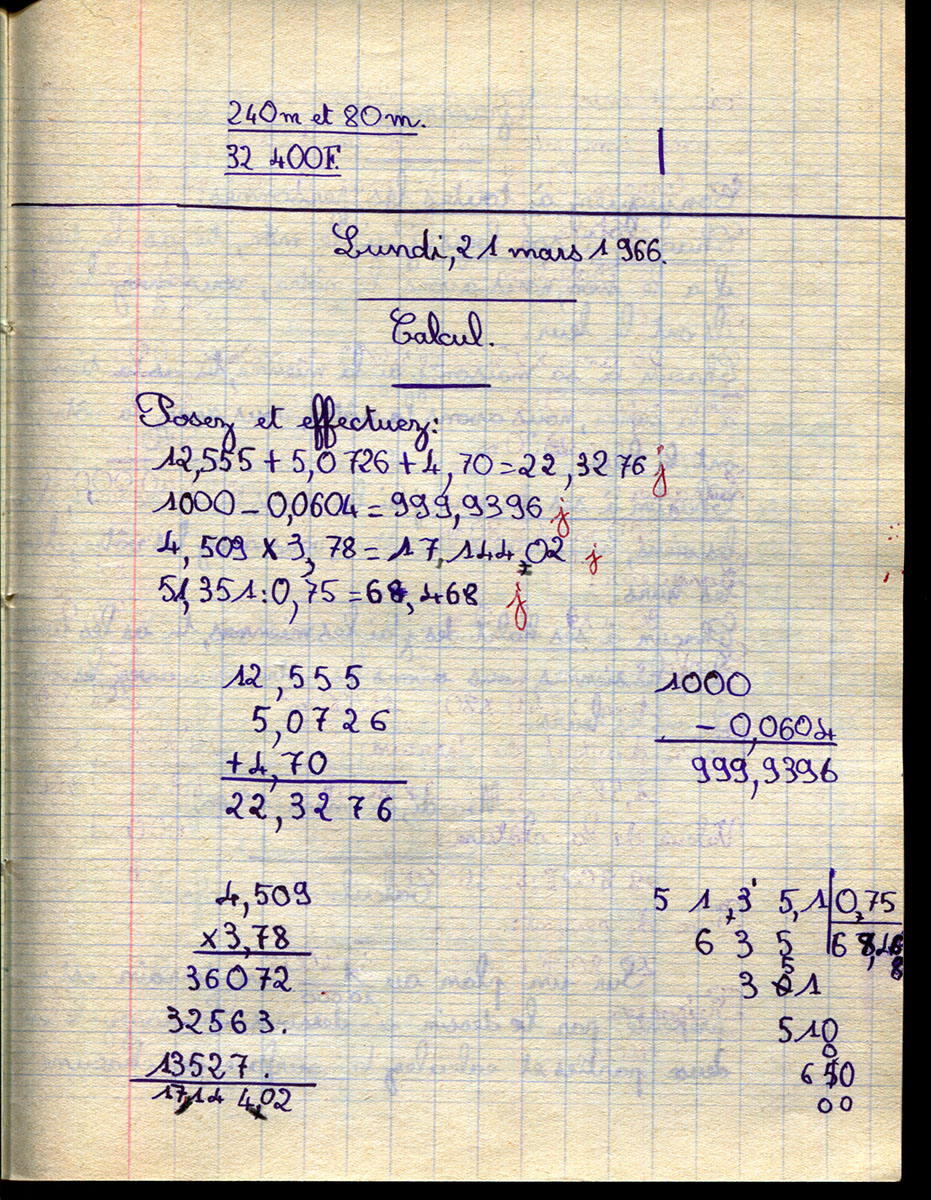 240m et 80m.
32 400F.
Lundi, 21 mars 1966.
Calcul.
Posez et effectuez:
12,555 + 5,0726 + 4,70 = 22,3276 j
1000 - 0,0604 = 999,9396 j
4,509 x 3,78 = 17,144,02 j
51,351 : 0,75 = 68,468 j
12,555
5,0726
+4,70
22,3276
1000
- 0,0604
999,9396
4,509
x3,78
36072
32563.
13527.
17,144,02
51,35,1 0,75
635 68,468
351
510
600
00